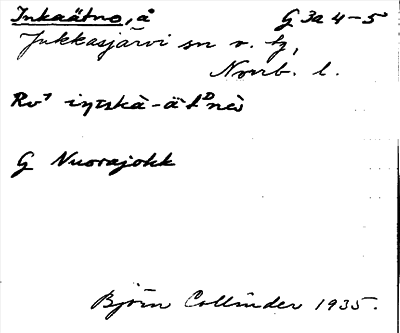 Inkaätno, å G 3a 4-5
Jukkasjärvi sn o. tg,
Norrb. l.
Rv⁷
G Nuorajokk
Björn Collinder 1935.